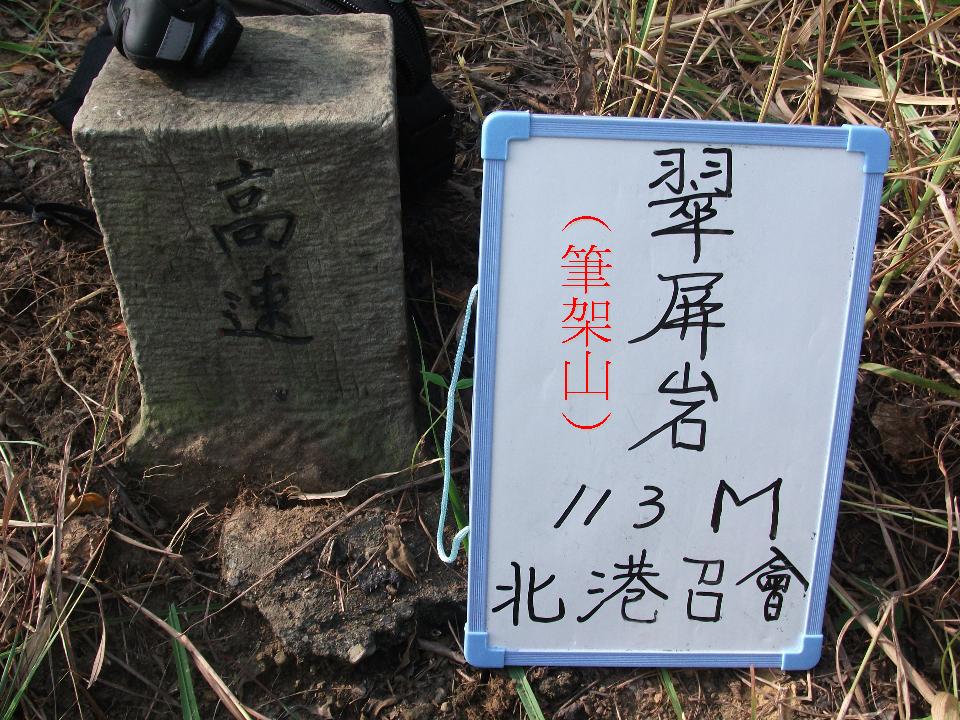 高速
翠屏岩
（筆架山）
113M
北港召會